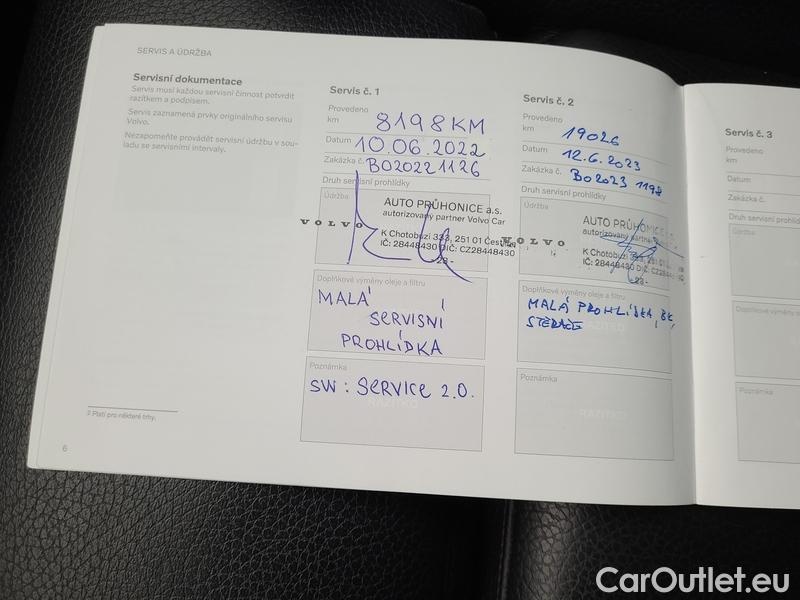 SERVIS A ÚDRŽBA
Servisní dokumentace
Servis musí každou servisní činnost potvrdit
razítkem a podpisem.
Servis zaznamená prvky originálního servisu
Volvo.
Nezapomeňte provádět servisní údržbu v sou-
ladu se servisními intervaly.
2 Platí pro některé trhy.
6
Servis č. 1
Provedeno
km 8198 KM
Datum 10.06.2022
Zakázka č. BO20221126
Druh servisní prohlídky
Údržba
AUTO PRŮHONICE a.s.
autorizovaný partner Volvo Car
VOLVO
K Chotobuzi 333, 251 01 Čestlice
IČ: 28448430 DIČ: CZ28448430
-23-
Doplňkové výměny oleje a filtru
MALÁ
SERVISNÍ
PROHLÍDKA
Poznámka
SW: SERVICE 2.0.
RAZÍTKO
Servis č. 2
Provedeno
km 19026
Datum 12.6.2023
Zakázka č. BO2023 1198
Druh servisní prohlídky
Údržba
AUTO PRŮHONICE a.s.
autorizovaný partner
VOLVO
K Chotobuzi 333, 251 01
IČ: 28448430 DIČ: CZ28448430
-23-
Doplňkové výměny oleje a filtru
MALÁ PROHLÍDKA, BK,
STĚRAČE
RAZÍTKO
Poznámka
RAZÍTKO
Servis č. 3
Provedeno
km
Datum
Zakázka č.
Druh servisní prohlíd
Údržba
Doplňkové výměny
Poznámka
CarOutlet.eu